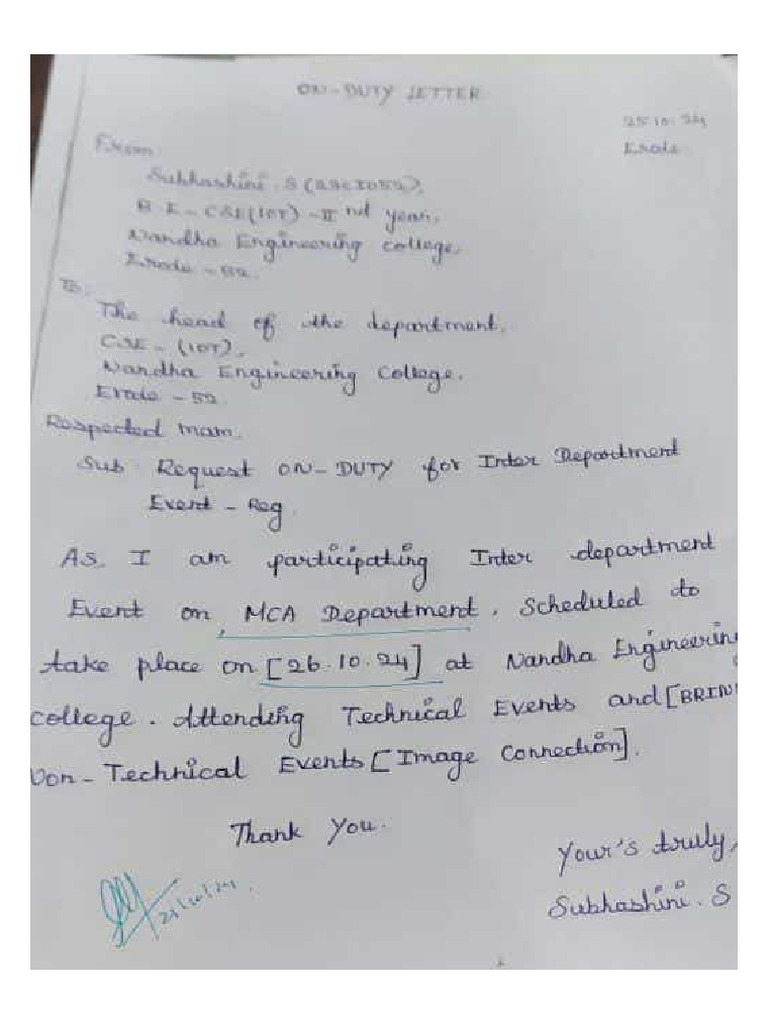 ON-DUTY LETTER
25.10.24
Erode.
From
Subhashini. S (23CI052),
B.E - CSE(IOT) - II nd year,
Nandha Engineering college,
Erode - 52.
To.
The head of the department,
CSE - (IOT),
Nandha Engineering College,
Erode - 52.
Respected mam,
Sub: Request ON-DUTY for Inter Department
Event - Reg.
As, I am participating Inter department
Event on, MCA Department, Scheduled to
take place on [26.10.24] at Nandha Engineering
college. Attending Technical Events and [BRIN
Non-Technical Events [Image Connection].
Thank You.
Your's truly,
Subhashini. S